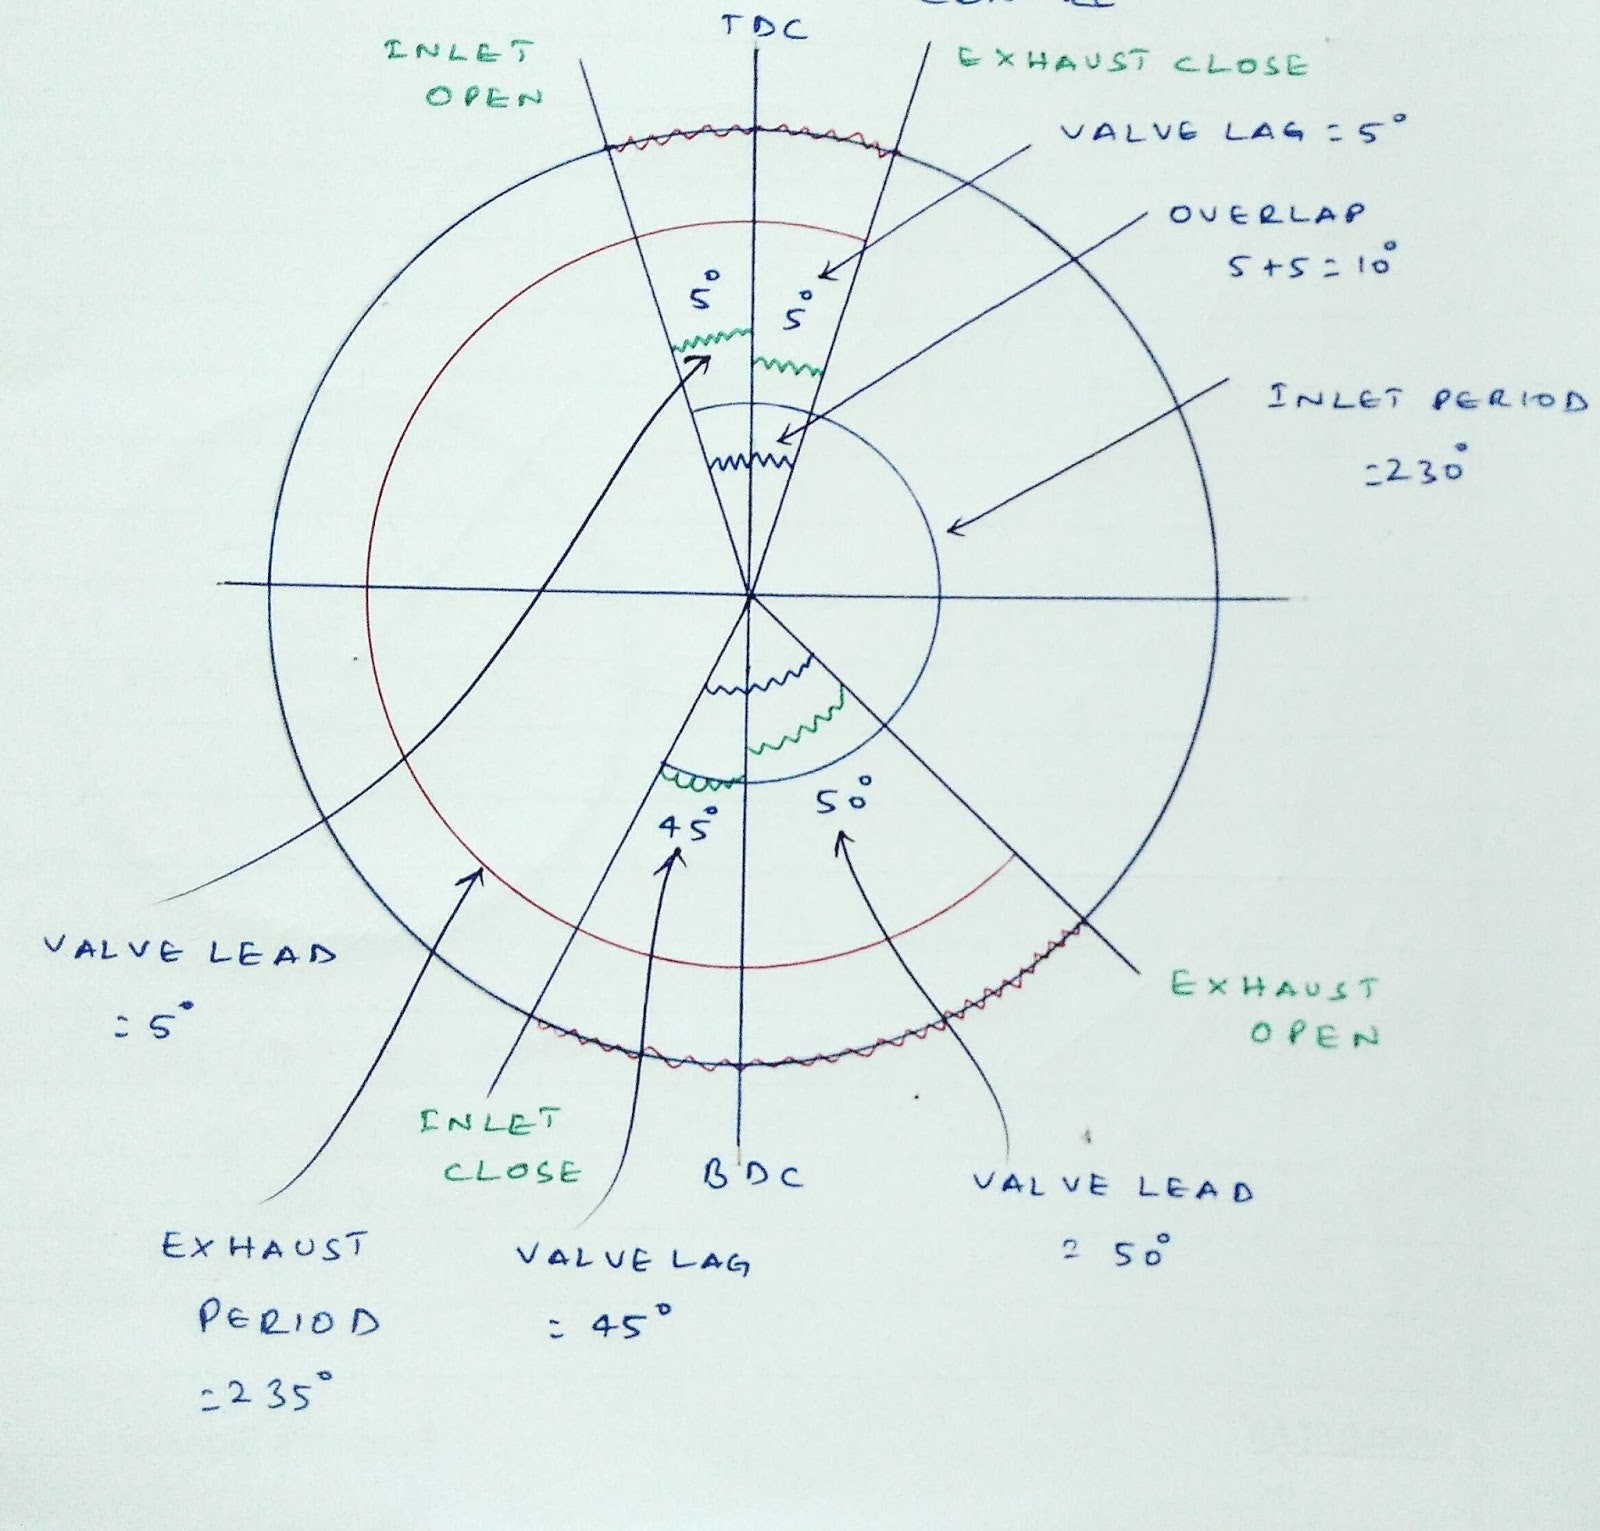 TDC
INLET
OPEN
EXHAUST CLOSE
VALVE LAG = 5°
OVERLAP
5+5=10°
5°
5°
INLET PERIOD
=230°
45°
50°
VALVE LEAD
=5°
EXHAUST
OPEN
INLET
CLOSE
BDC
VALVE LEAD
= 50°
EXHAUST
PERIOD
=235°
VALVE LAG
= 45°